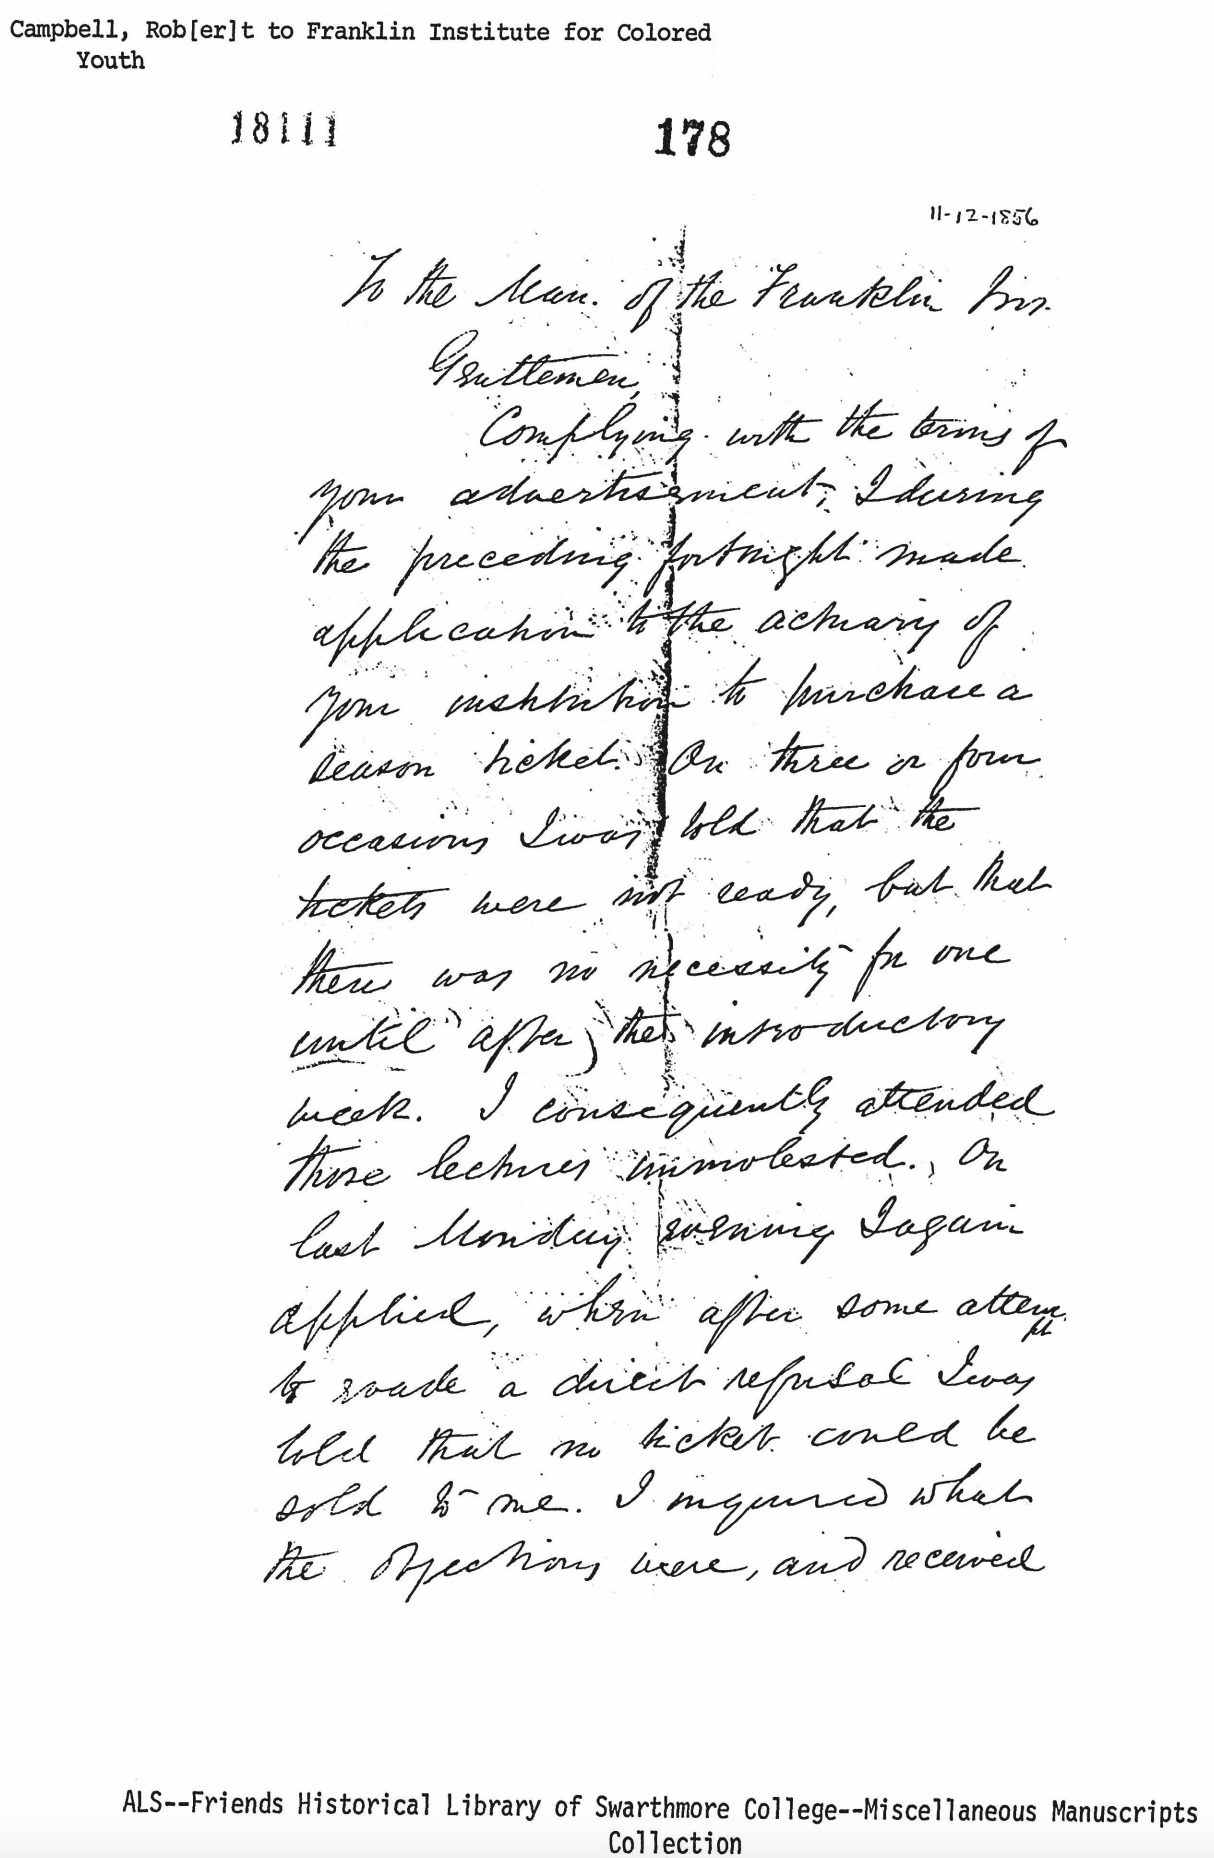 Campbell, Rob[er]t to Franklin Institute for Colored
Youth
18111 178
11-12-1856
To the Man. of the Franklin Ins.
Gentlemen,
Complying with the terms of
your advertisement, I during
the preceding fortnight made
application to the actuary of
your institution to purchase a
season ticket. On three or four
occasions I was told that the
tickets were not ready, but that
there was no necessity for one
until after the introductory
week. I consequently attended
those lectures unmolested. On
last Monday evening I again
applied, when after some attempt
to evade a direct refusal I was
told that no ticket could be
sold to me. I inquired what
the objections were, and received
ALS--Friends Historical Library of Swarthmore College--Miscellaneous Manuscripts
Collection